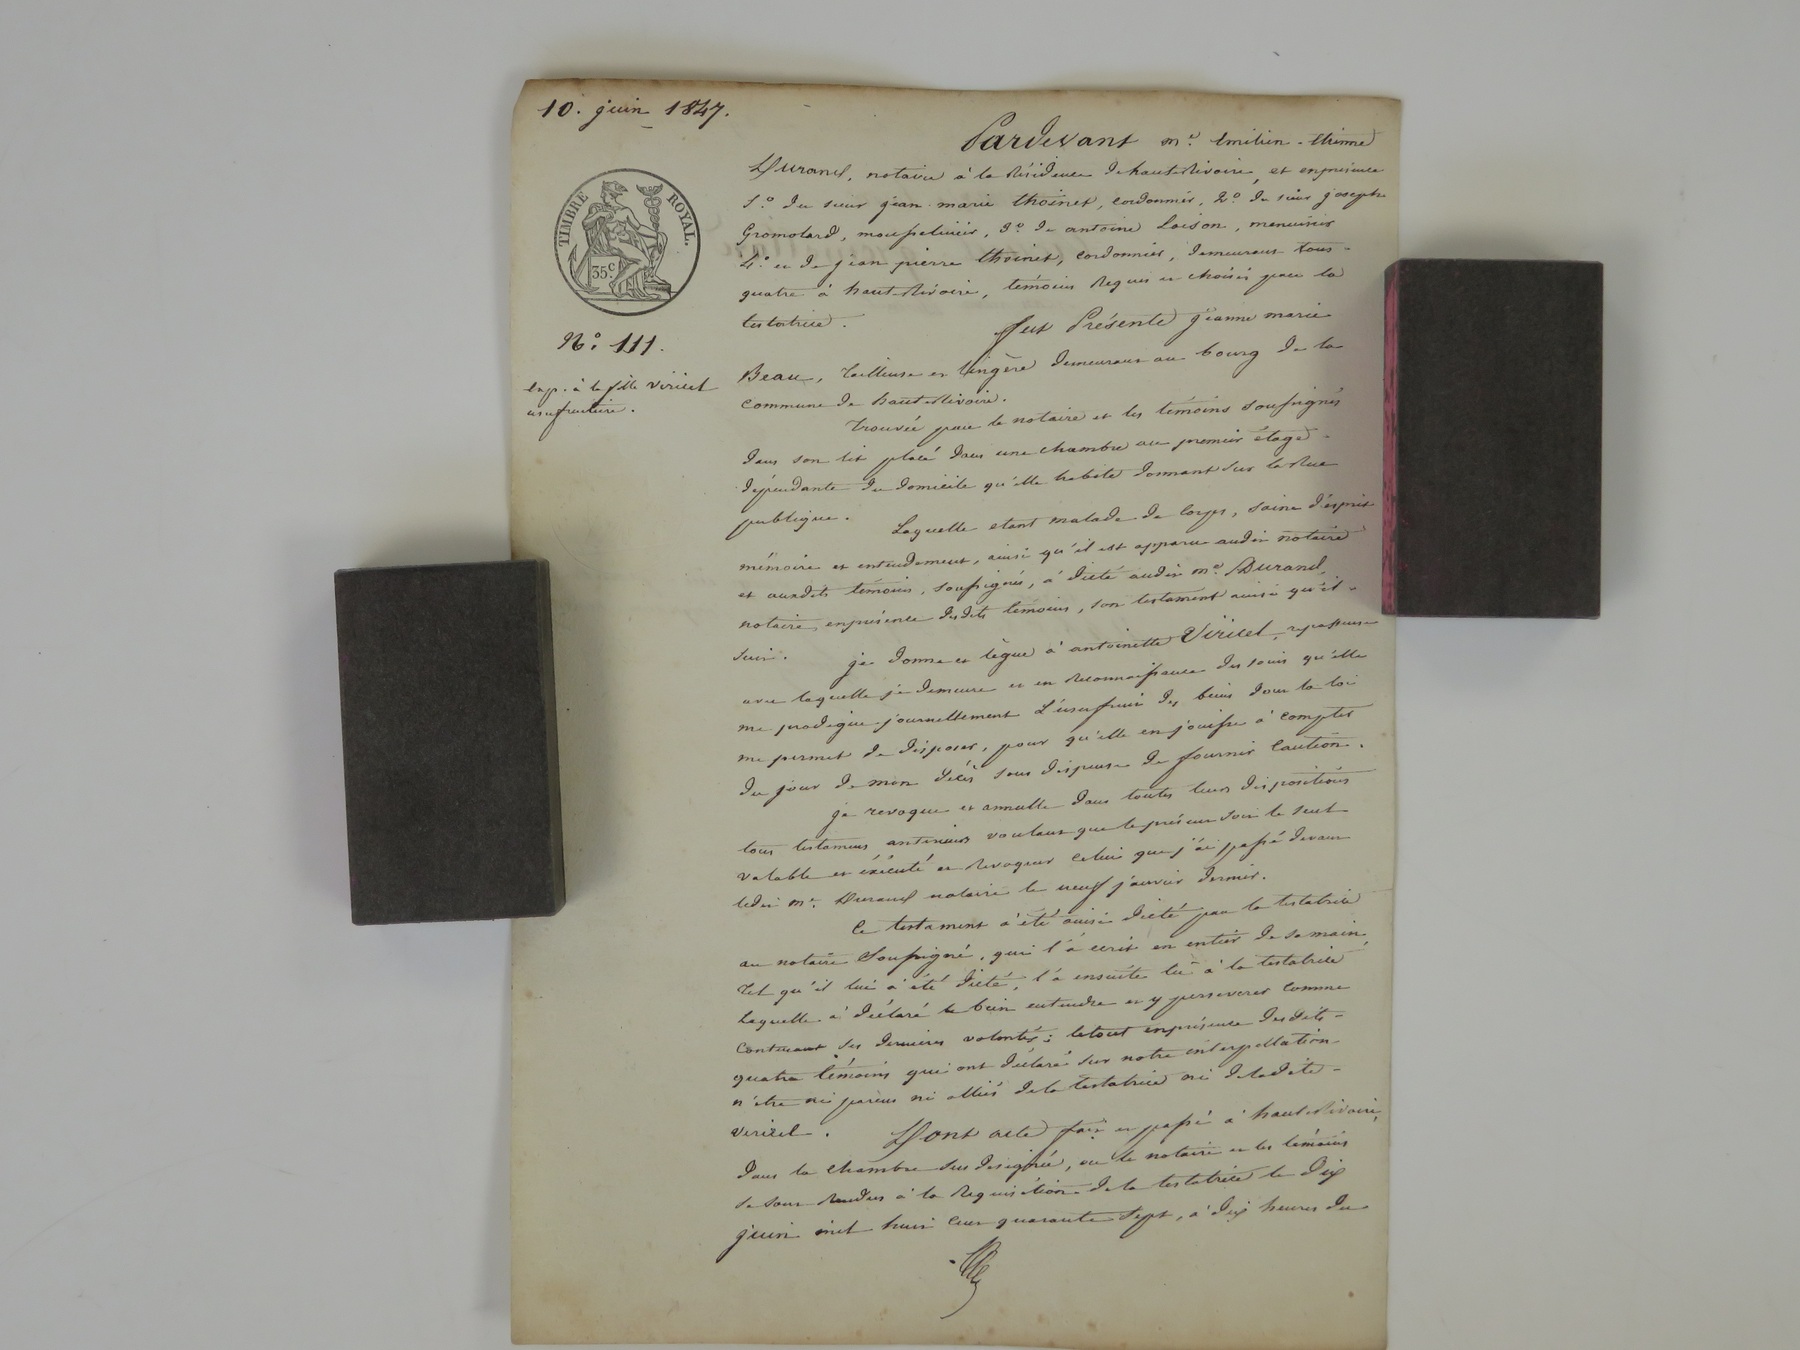 10. juin 1847.
Pardevant me. émilien-étienne
Durand, notaire à la Résidence de hauterivoire, et enprésence
1.° du sieur jean-marie thoinet, cordonnier, 2.° du sieur joseph
Gromolard, 3.° de antoine Loison, menuisier
4.° et de jean pierre thoinet, cordonnier, demeurant tous-
quatre à hauterivoire, témoins Requis et choisis par la
testatrice.
TIMBRE ROYAL.
35c.
N.° 111.
exp. à la fille Viricel
usufruitière.
fut Présente jeanne marie
Beau, tailleuse et lingère demeurant au bourg de la
commune de hauterivoire.
trouvée par le notaire et les témoins soussignés
dans son lit placé dans une chambre au premier étage-
dépendante du domicile qu'elle habite donnant sur la Rue
publique.
Laquelle etant malade de corps, saine d'esprit
mémoire et entendement, ainsi qu'il est apparu audit notaire
et auxdits témoins, soussignés, à dicté audit me. Durand,
notaire, enprésence desdits témoins, son testament ainsi qu'il-
suit.
je donne et lègue à antoinette Viricel, repasseuse
avec laquelle je demeure et en Reconnaissance des soins qu'elle
me prodigue journellement L'usufruit des biens dont la loi
me permet de disposer, pour qu'elle en jouisse à compter
du jour de mon décès sous dispense de fournir caution.
je revoque et annulle dans toutes leurs dispositions
tous testamens antérieurs voulant que le présent soit le seul
valable et éxécuté et Revoquer celui que j'ai passé devant
ledit me. Durand notaire le neuf janvier dernier.
Ce testament à été ainsi dicté par la testatrice
au notaire Soussigné, qui l'à ecrit en entier de sa main,
tel qu'il lui à été dicté, l'à ensuite lu à la testatrice
laquelle à déclaré le bien entendre et y perseverer comme
contenant ses dernières volontés; letout enprésence desdits-
quatre témoins qui ont déclaré sur notre interpellation
n'être ni parens ni alliés dela testatrice ni deladite-
viricel.
Dont acte fait et passé à hauterivoire,
dans la chambre sus désignée, ou le notaire et les témoins
se sont Rendus à la Requisition dela testatrice le dix
juin mil huit cent quarante sept, à dix heures du